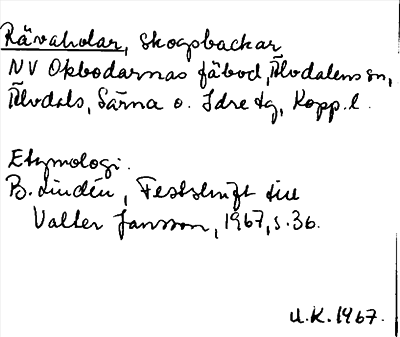 Rävaholar, skogsbackar
NV Okbodarnas fäbod, Älvdalens sn,
Älvdals, Särna o. Idre tg, Kopp. l.
Etymologi.
B. Lindén, Festskrift till
Valter Jansson, 1967, s. 36.
U.K. 1967.